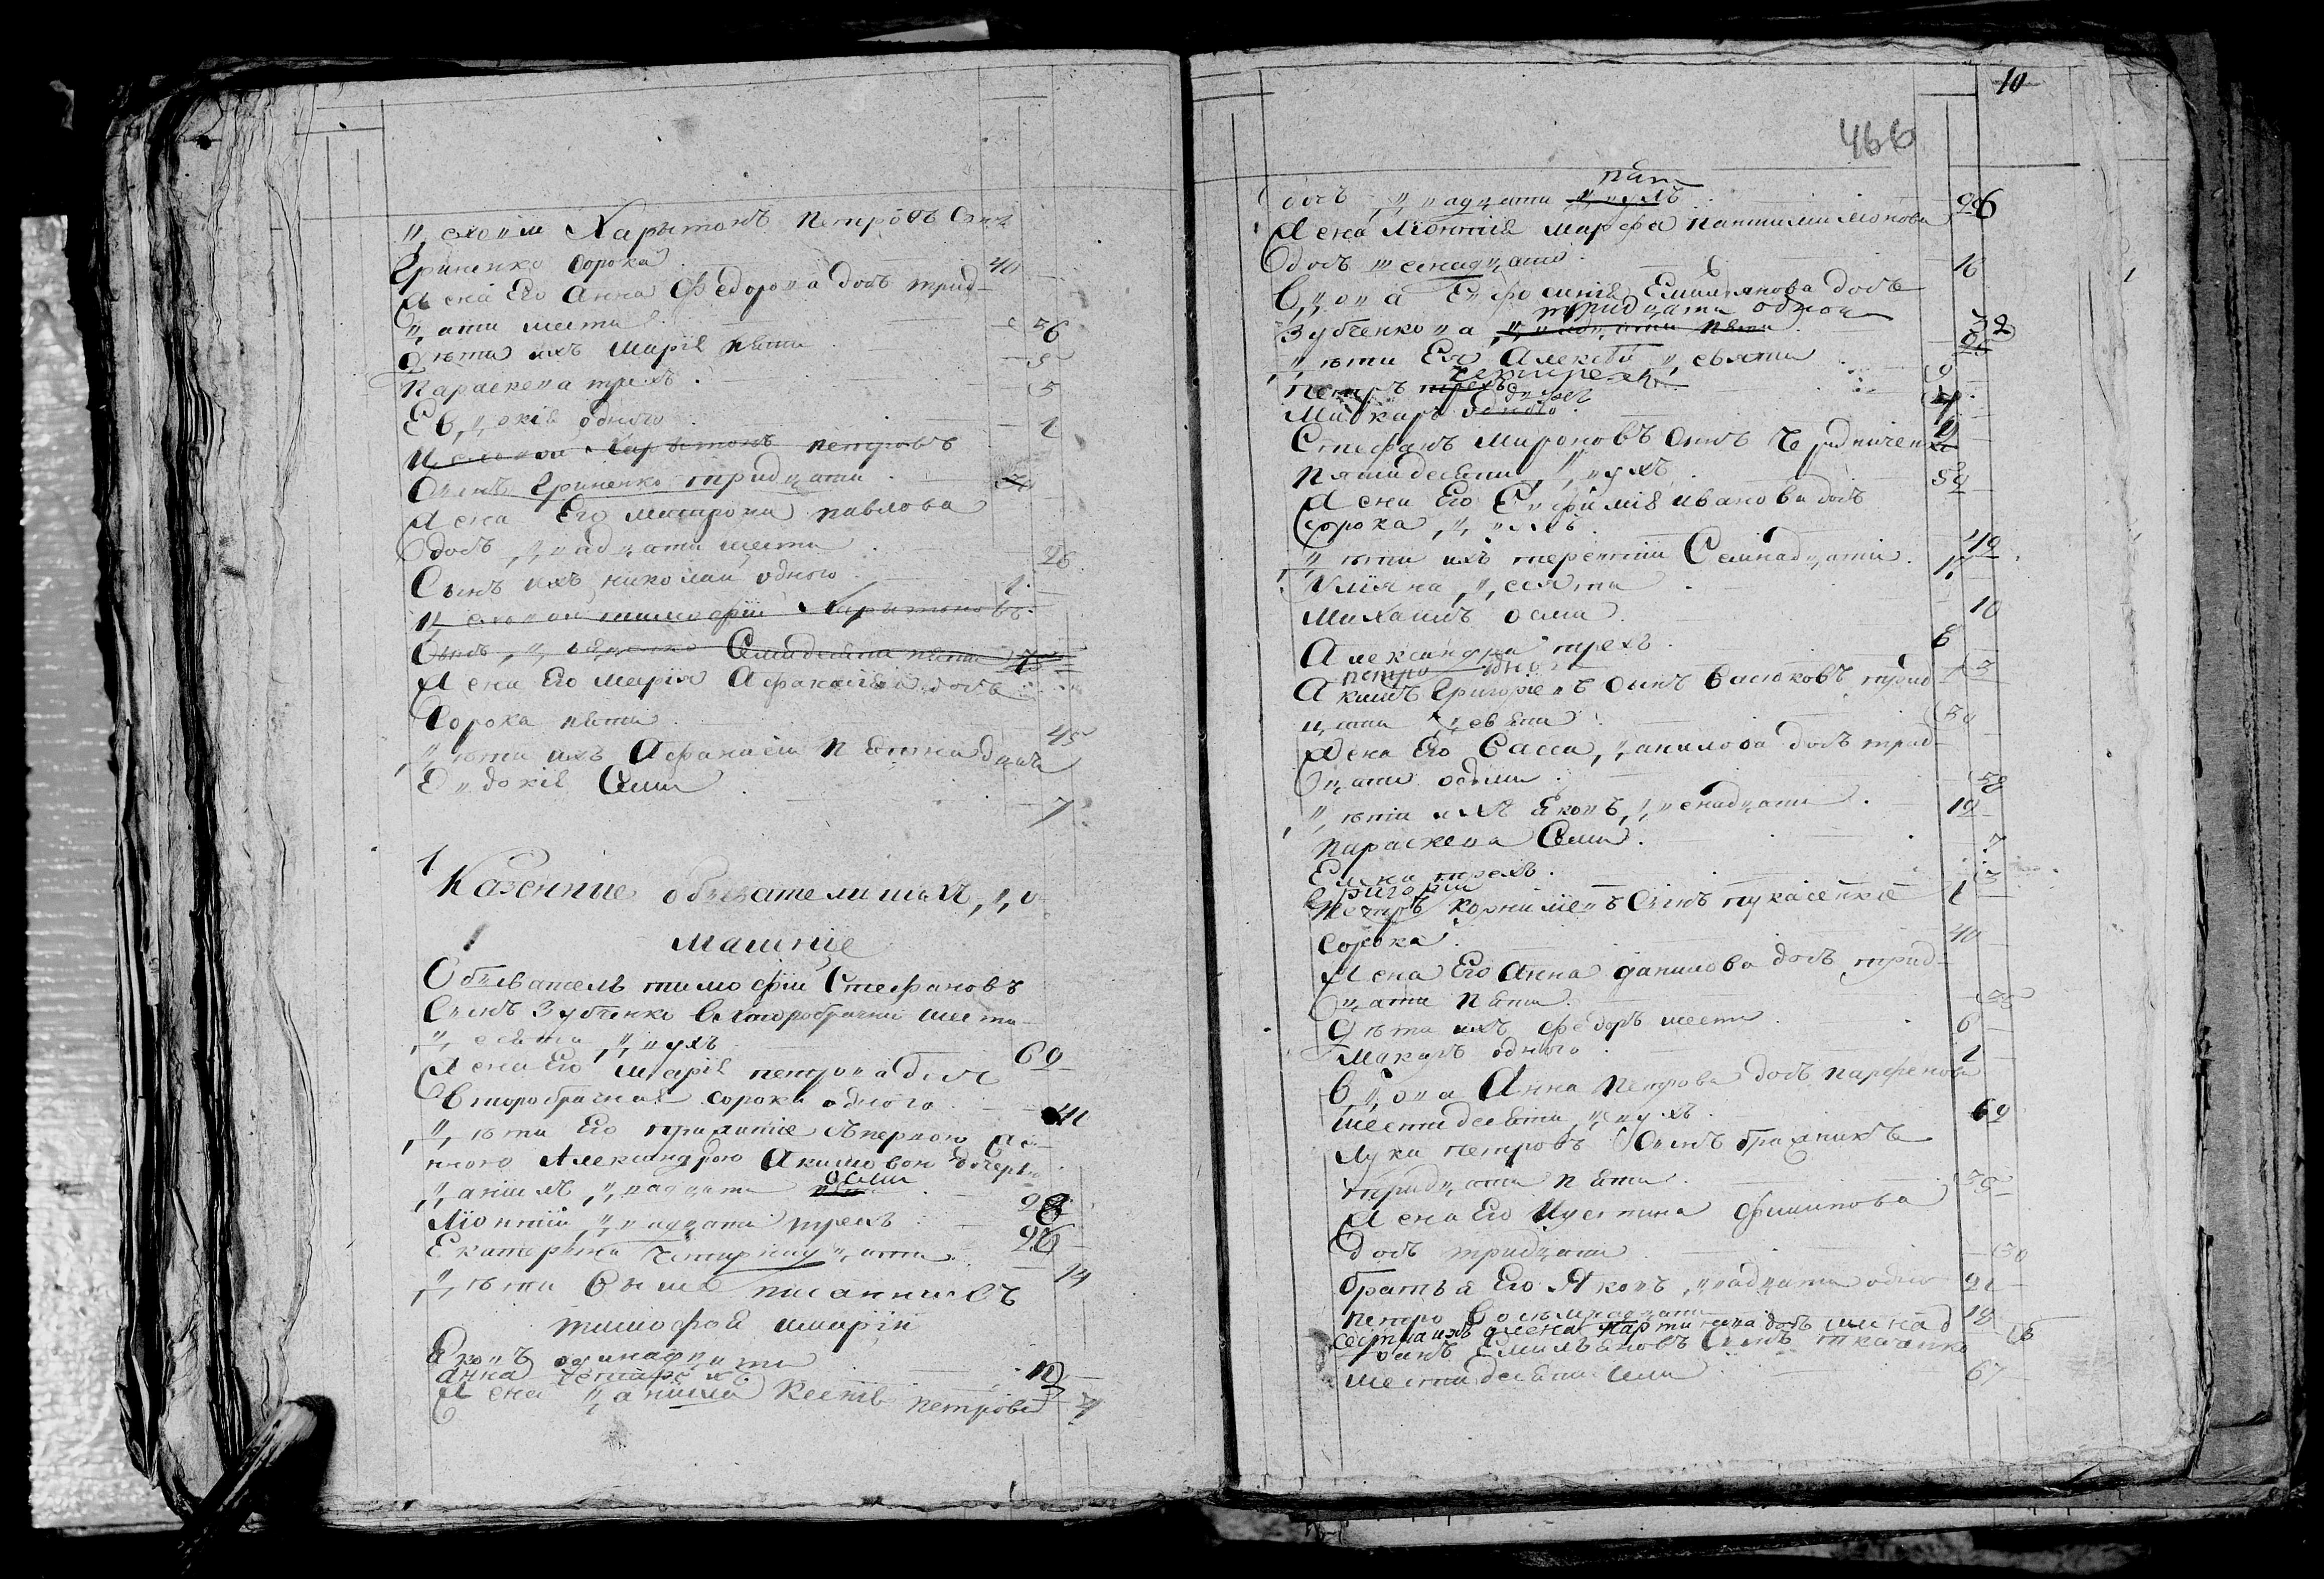 Харытонъ Петровъ Сынъ
Гриненко сорока 40
Жена Его Анна Федорова дочь трид-
цати шести 36
Дѣти ихъ Марія пяти 5
Параскева трехъ 3
Евдокія одного 1
Харытонъ Петровъ
Сынъ Гриненко тридцати 30
Жена Его Матрона Павлова
дочь двадцати шести 26
Сынъ ихъ Николай одного 1
Тимофій Харытоновъ
Сынъ Семидесяти пяти 75
Жена Его Марія Афанасіева дочь
Сорока пяти 45
Дѣти ихъ Афанасій Пятнадцать
Евдокія Семи 7
Казенніе обывателишихъ
Обыватель Тимофій Стефановъ
Сынъ Зубченко второбрачній шести
десяти двухъ 62
Жена Его Марія Петрова дочь
второбрачная сорока одного 41
Дѣти Его прижитіе съ первою Же-
ною Александрою Акимовою дочерью
Даніилъ двадцати осми 28
Ліонтій двадцати трехъ
Екатерина Четырнадцати 14
Дѣти выше писанныхъ
Тимофея Маріи
Яковъ одинадцати
Анна четырехъ 4
Жена Даніила Ксенія Петрова
10
466
дочь двадцати двухъ пяти
Жена Ліонтія Марфа Пантилимонова
дочь шеснадцати 16
Вдова Евфросинія Емилянова дочь
тридцати одной
Зубченкова двадцати пяти
Дѣти Его Алексѣй девяти 9
четирехъ
Петръ трехъ 4
двухъ
Макаръ одного 2
Стефанъ Мироновъ Сынъ Чередниченко
Пятидесяти двухъ 52
Жена Его Евфимія Иванова дочь
сорока двухъ 42
Дѣти ихъ Терентій Семнадцати 17
Улияна десяти 10
Михаилъ осми 8
Александра трехъ 3
Петро одного
Акимъ Григоріевъ Сынъ Васюковъ трид
цати девяти 39
Жена Его Васса Данилова дочь трид-
цати осьми 38
Дѣти ихъ Яковъ двенадцати 12
Параскева Семи 7
Елена трехъ 3
Григорій 1
Петръ Корниліевъ Сынъ Лукасенкъ
сорока 40
Жена Его Анна Данилова дочь трид-
цати пяти 35
Дѣти ихъ Федоръ шести 6
Макаръ одного 1
Вдова Анна Петрова дочь Парфенова
шестидесяти двухъ 62
Лука Петровъ Сынъ Бражникъ
тридцати пяти 35
Жена Его Иустина Филипова
дочь тридцати 30
Братья Его Яковъ двадцати одно 21
Петро Восьмнадцати 18
Сестра ихъ Елена Мартинова дочь шеснад 16
Емильяновъ Сынъ Ткаченко
шестидесяти Семи 67